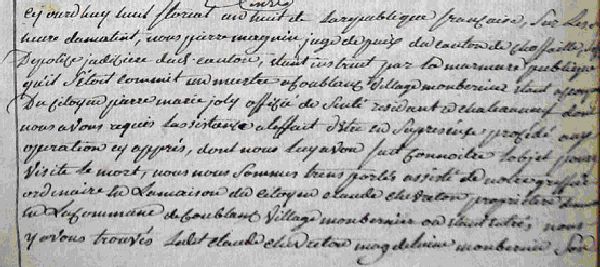 ejourdhuy huit floreal an huit de la republique francaise, sur les
neuf du matin, nous pierre magnin juge de paix du canton de choffailles
De police judiciaire dudt canton, etant instruit par la rumeure publique
quil setoit commit un meurtre a Coublanc village monbernier etant
Du citoyen pierre marie joly officie de santé resident a chateauneuf dont
nous avons requis lassistance a leffait detre en sa presence procédé aux
operation cy apprés, dont nous luy avon fait connoitre lobjet pour
visite le mort, nous nous sommes trans portés assisté de notre greffier
ordinaire en la maison du citoyen claude chevreton proprietaire
en la commune de Coublanc village monbernier ou etant entrés nous
y avons trouvés ledit claude chevreton magdeleine monbernier